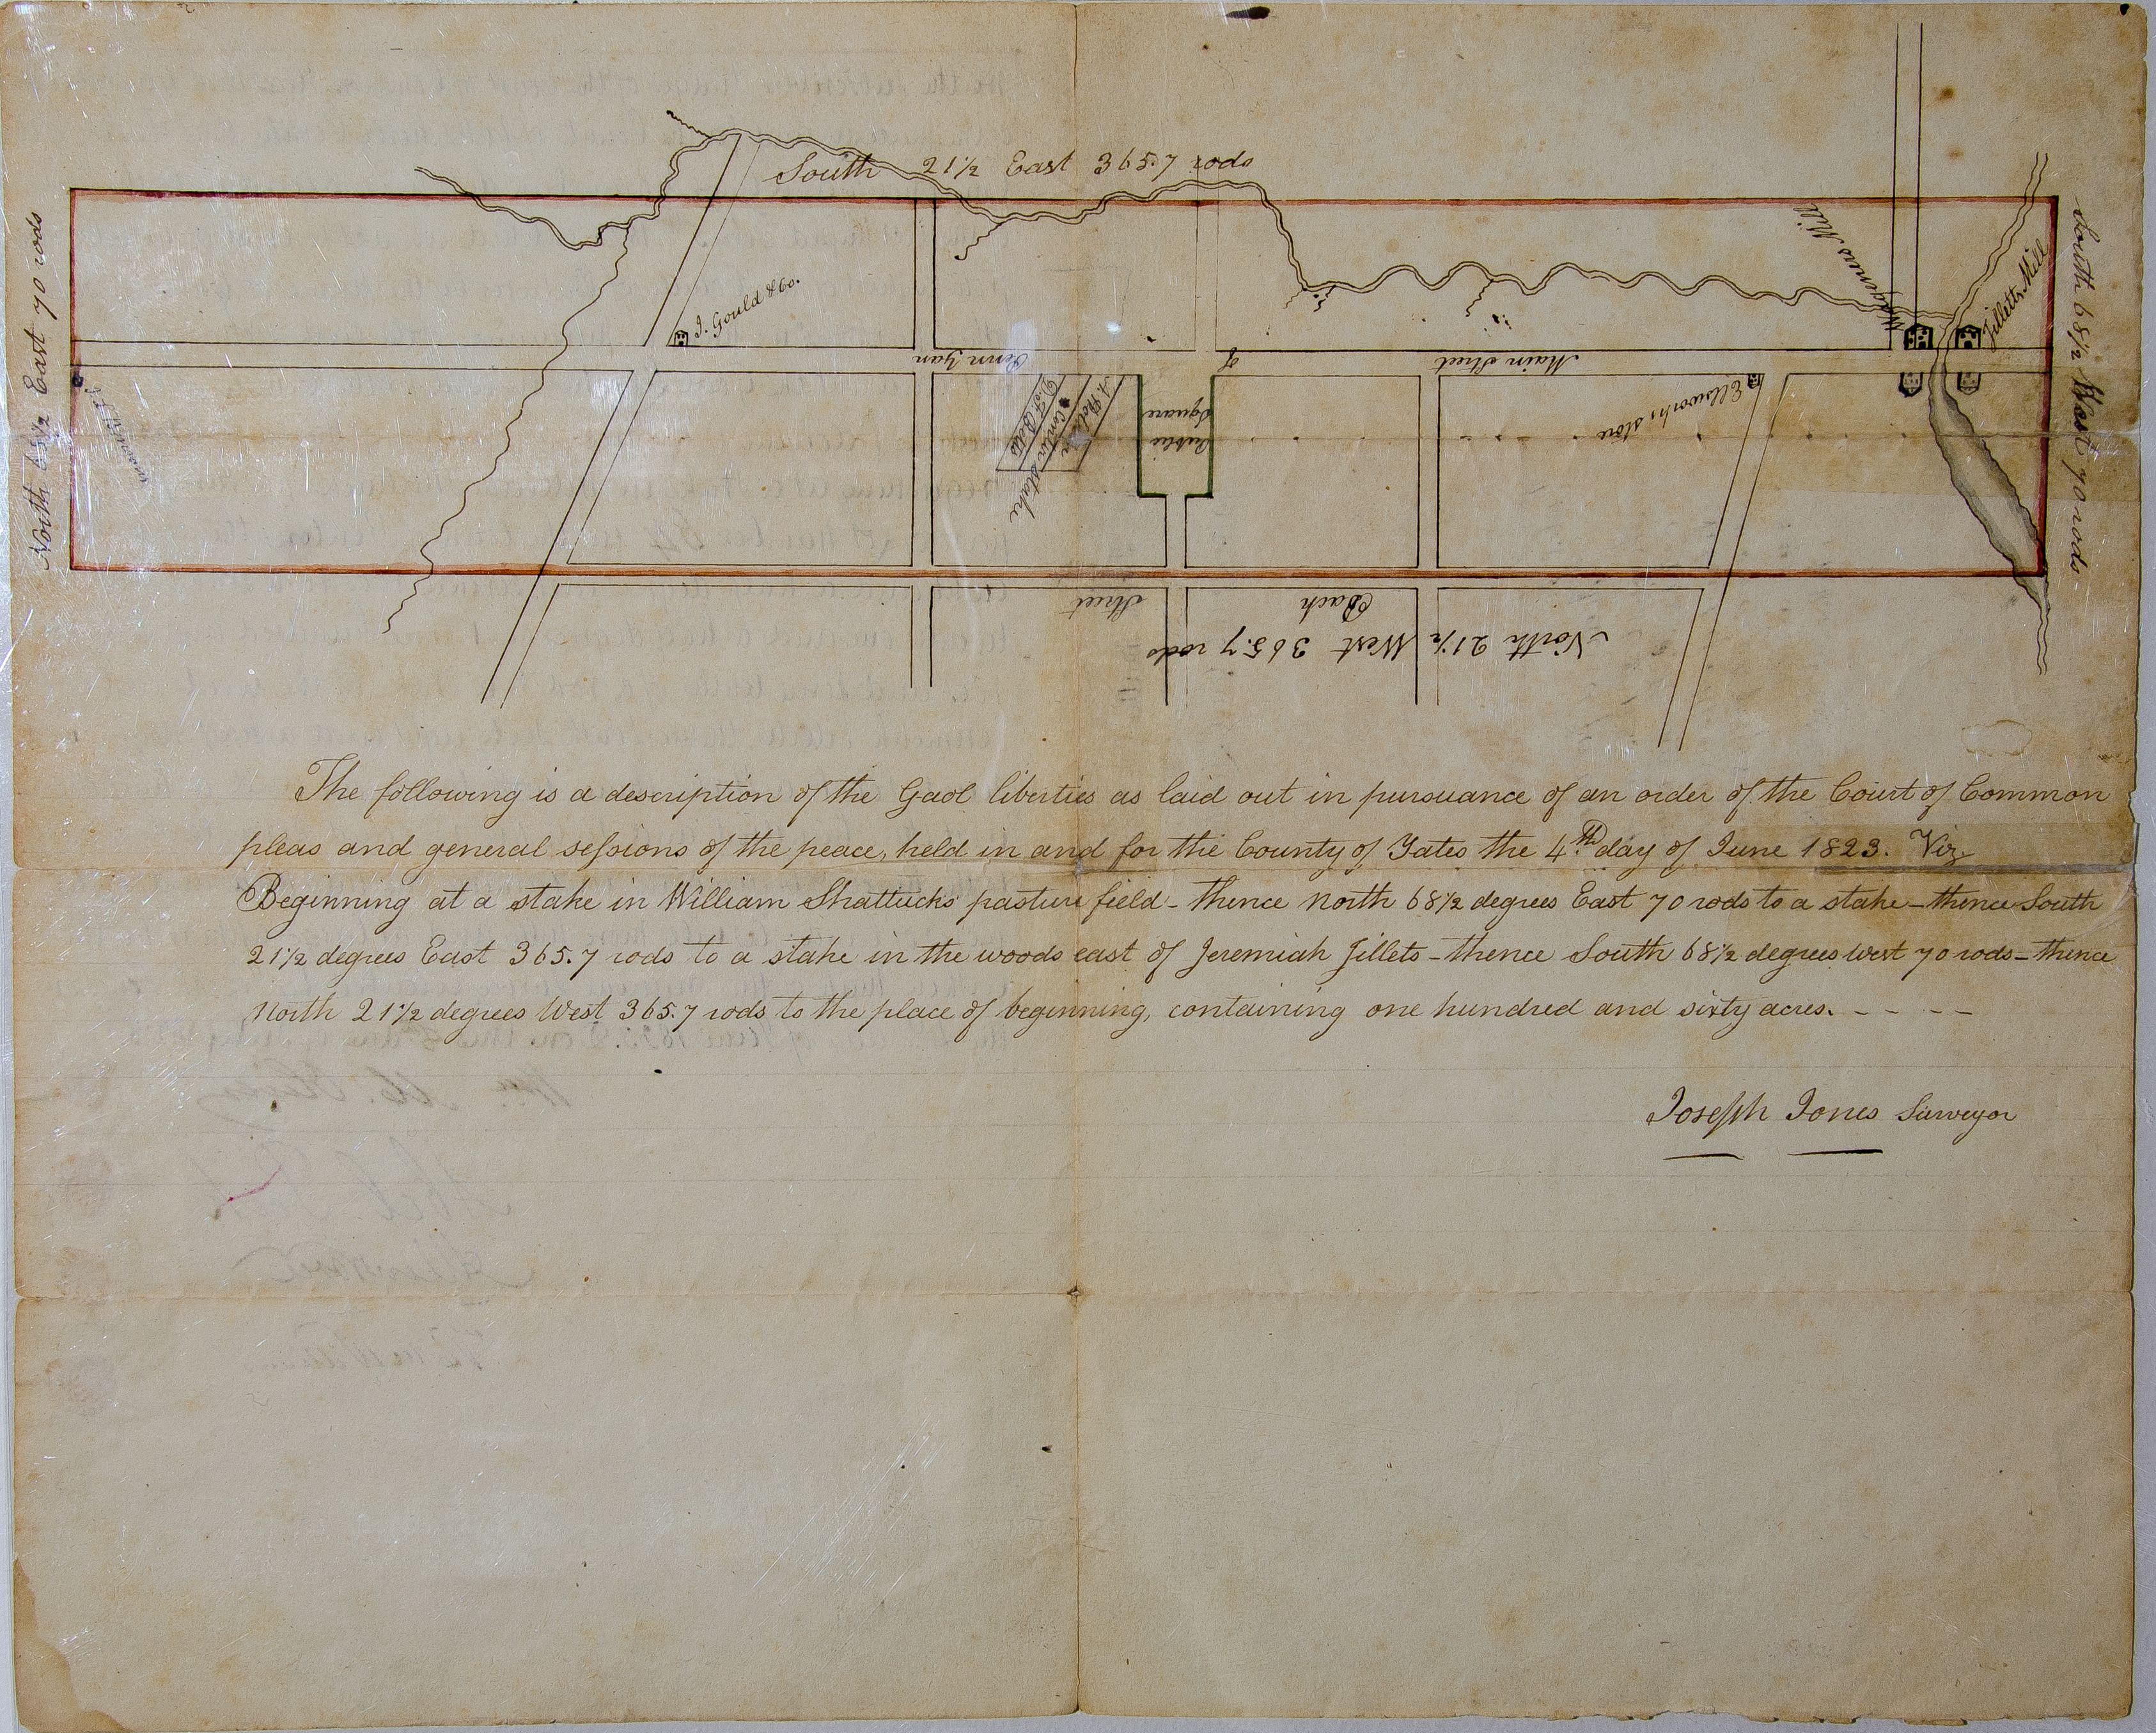 South 21½ East 365.7 rods
North 68½ East 70 rods
South 68½ West 70 rods
J. Gould & Co.
Wageners Mill
Jilletts Mill
Main Street
of
Penn Yan
Ellsworths store
Public
Square
Back
Street
North 21½ West 365.7 rods
The following is a description of the Gaol liberties as laid out in pursuance of an order of the Court of Common
pleas and general sessions of the peace, held in and for the County of Yates the 4th day of June 1823. Viz
Beginning at a stake in William Shattucks pasture field - thence North 68½ degrees East 70 rods to a stake - thence South
21½ degrees East 365.7 rods to a stake in the woods east of Jeremiah Jillets - thence South 68½ degrees West 70 rods - thence
North 21½ degrees West 365.7 rods to the place of beginning, containing one hundred and sixty acres. - - - -
Joseph Jones Surveyor